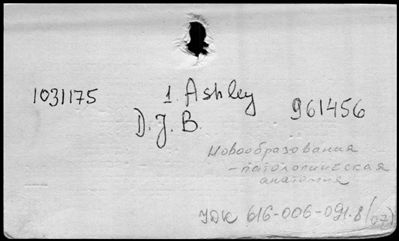 1031175 1. Ashley 961456
D. J. B.
Новообразования
-патологическая
анатомия
УДК 616-006-091.8(07)